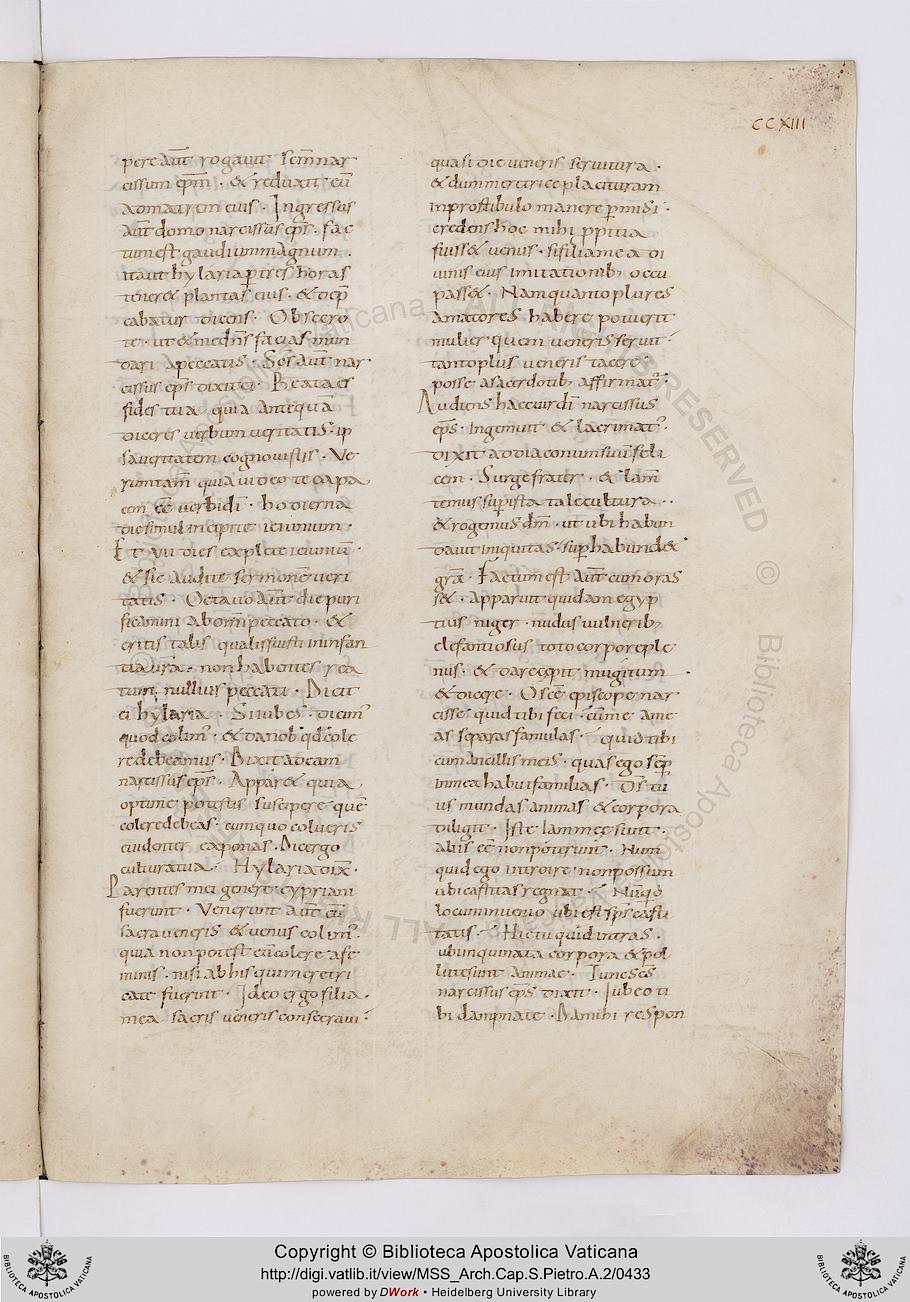 CCXIII
pere aūt rogauit sc̄m nar
cissum ep̄m · & reduxit eū
ad matrem eius · Ingressus
aūt domo narcissus ep̄s · fac
tum est gaudium magnum ·
ita ut hylaria p̄ tres horas
tener& plantas eius · & dep̄
cabatur dicens · Obsecro
te · ut & me dn̄s facias mun
dari a peccatis · Sc̄s aūt nar
cissus ep̄s dixit ei · Beata es
fides tua quia antequā
diceres uerbum ueritatis · ip
sa ueritatem cognouistis · Ve
rumtam̄ quia uideo te capa
cem eē uerbi dī · hodierna
die simul incipite ieiunium ·
Et vii dies explete ieiuniū ·
& sic audite sermonē ueri
tatis · Octauo aūt die puri
ficamini ab om̄i peccato · &
eritis talis qualis fuisti in infan
tia ur̄a · non habentes rea
tum nullius peccati · Dicit
ei hylaria · Si iubes dicim'
quod colim' · & da nob' qd̄ cole
re debeamus · Dixit ad eam
narcissus ep̄s · Appar& quia
optime potestis suscipere quē
colere debeas · cum quo colueris
euidenter exponas · Dic ergo
cultura tua · Hylaria dix̄ ·
Parentes mei genere cypriani
fuerunt · Venerunt aūt cū
sacra ueneris & uenus colim' ·
quia non potest eū colere a fe
minis · nisi ab his qui meretri
cate fuerint · Ideo ergo filia
mea sacris ueneris consecraui ·
quasi die ueneris seruitura ·
& dum meretrice placituram
in prostibulo manere p̄misi ·
credens hoc mihi p̄pitia
fuiss& uenus · si filia mea di
uinis eius imitationib; occu
pass& · Nam quanto plures
amatores habere potuerit
mulier quem ueneris seruit ·
tanto plus ueneris tacere
posse a sacerdotib; affirmat' ·
Audiens haec uir dī narcissus
ep̄s · ingemuit & lacrimat' ·
dixit ad diaconum suū feli
cem · Surge frater · & lam̄
temus sup̄ ista tale cultura · ·
& rogemus dm̄ · ut ubi habun
dauit iniquitas · sup̄ habund&
gr̄a · Factum est aūt cum oras
s& · apparuit quidam egyp
tius niger · nudus uulnerib;
elefantiosus toto corpore ple
nus · & dare cepit mugitum ·
& dicere · O sc̄e episcope nar
cisse quid tibi feci · cū me ame
as separas famulas · quid tibi
cum ancillis meis · quas ego sēp
in mea habui familias · Ds̄ tu
us mundas animas & corpora
diligit · Iste iam mee sunt ·
aliis eē non poterunt · Num
quid ego introire non possum
ubi castitas regnat · Nūqd̄
locum inuenio ubi est sp̄s casti
tatis · Hic tu quid intras ·
ubi inquinata corpora & pol
lute sunt animae · Tunc sc̄s
narcissus ep̄s dixit · Iubeo ti
bi dampnate · Da mihi respon
Copyright © Biblioteca Apostolica Vaticana
http://digi.vatlib.it/view/MSS_Arch.Cap.S.Pietro.A.2/0433
powered by DWork • Heidelberg University Library